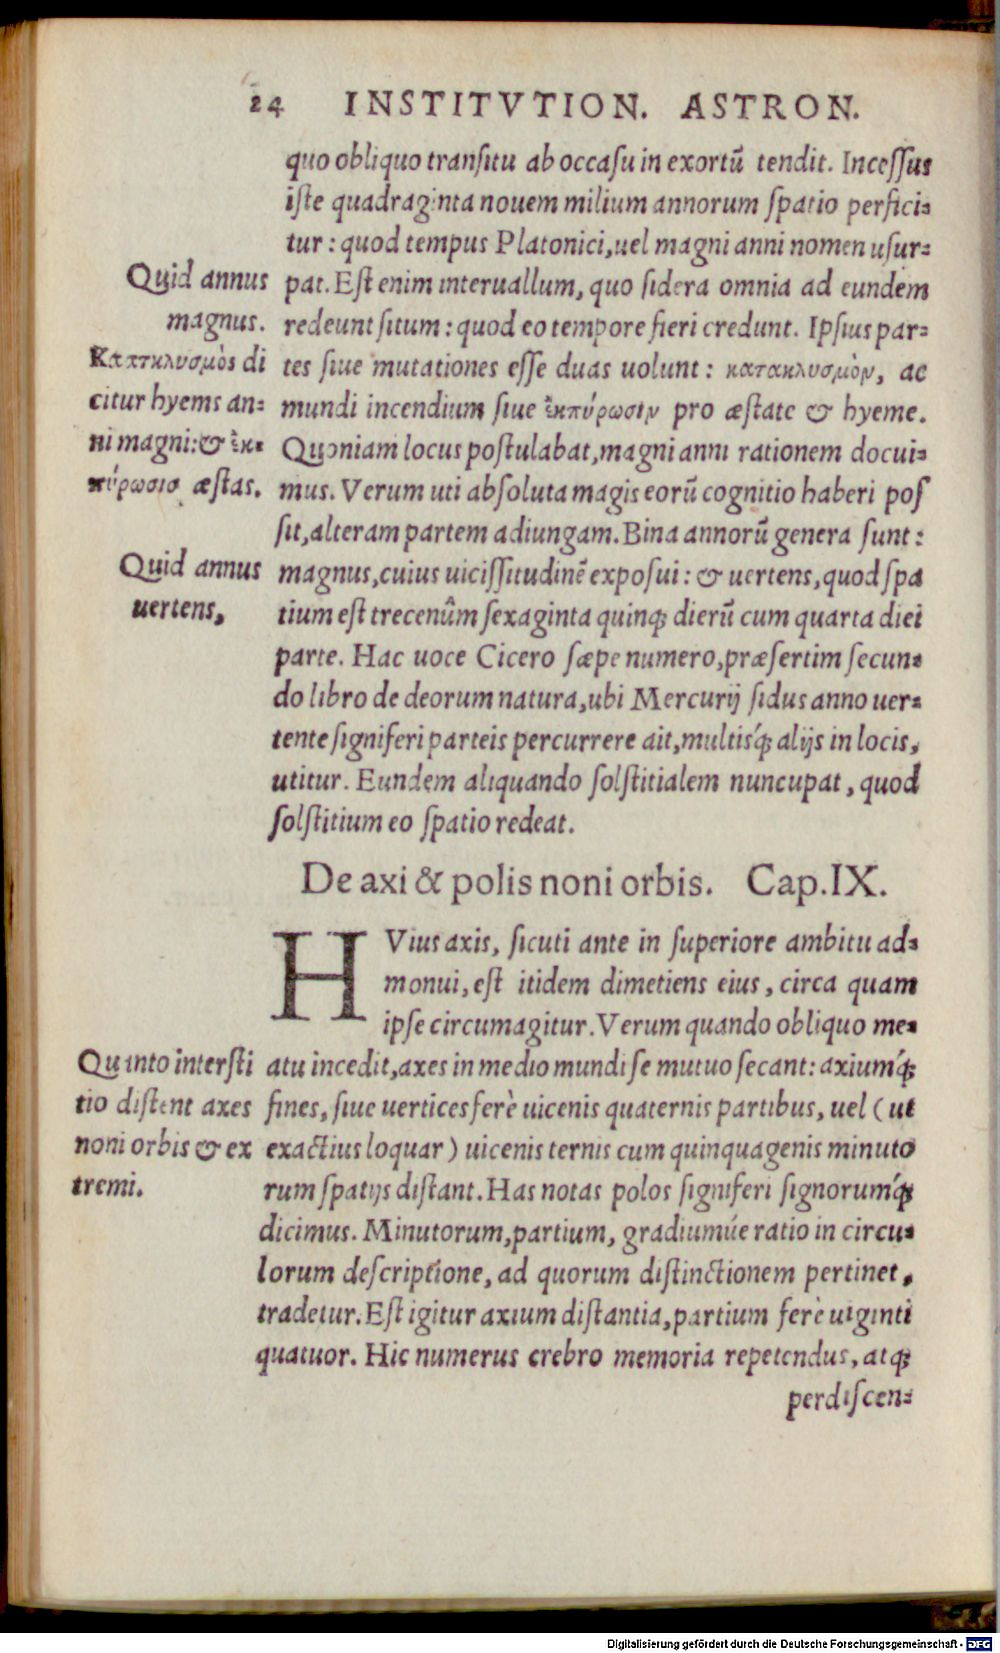 24 INSTITVTION. ASTRON.
quo obliquo transitu ab occasu in exortũ tendit. Incessus
iste quadraginta nouem milium annorum spatio perfici=
tur: quod tempus Platonici, uel magni anni nomen usur=
Quid annus
magnus.
pat. Est enim interuallum, quo sidera omnia ad eundem
redeunt situm: quod eo tempore fieri credunt. Ipsius par=
Κατακλυσμὸs di
citur hyems an=
ni magni: & ἐκ=
πύρωσισ æstas.
tes siue mutationes esse duas uolunt: κατακλυσμὸν, ac
mundi incendium siue ἐκπύρωσιν pro æstate & hyeme.
Quoniam locus postulabat, magni anni rationem docui=
mus. Verum uti absoluta magis eorũ cognitio haberi pos
sit, alteram partem adiungam. Bina annorũ genera sunt:
Quid annus
uertens,
magnus, cuius uicissitudinẽ exposui: & uertens, quod spa
tium est trecenûm sexaginta quinq; dierũ cum quarta diei
parte. Hac uoce Cicero sæpe numero, præsertim secun=
do libro de deorum natura, ubi Mercurij sidus anno uer=
tente signiferi parteis percurrere ait, multisq́; alijs in locis,
utitur. Eundem aliquando solstitialem nuncupat, quod
solstitium eo spatio redeat.
De axi & polis noni orbis. Cap. IX.
HVius axis, sicuti ante in superiore ambitu ad=
monui, est itidem dimetiens eius, circa quam
ipse circumagitur. Verum quando obliquo me=
Quanto intersti
tio distent axes
noni orbis & ex
tremi.
atu incedit, axes in medio mundi se mutuo secant: axiumq́;
fines, siue uertices ferè uicenis quaternis partibus, uel (ut
exactius loquar) uicenis ternis cum quinquagenis minuto
rum spatijs distant. Has notas polos signiferi signorumq́;
dicimus. Minutorum, partium, graduumúe ratio in circu=
lorum descriptione, ad quorum distinctionem pertinet,
tradetur. Est igitur axium distantia, partium ferè uiginti
quatuor. Hic numerus crebro memoria repetendus, atq;
perdiscen=
Digitalisierung gefördert durch die Deutsche Forschungsgemeinschaft - DFG